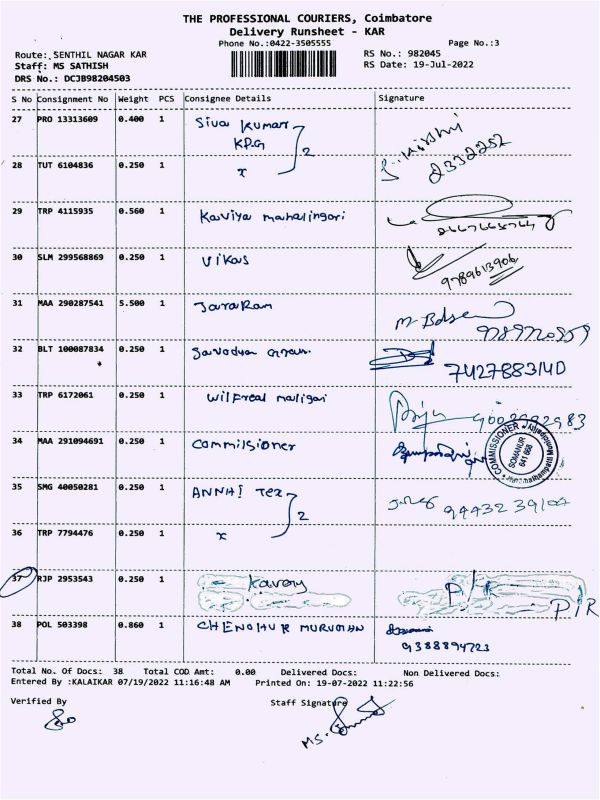 THE PROFESSIONAL COURIERS, Coimbatore
Delivery Runsheet - KAR
Phone No.:0422-3505555
Page No.:3
Route: SENTHIL NAGAR KAR
RS No.: 982045
Staff: MS SATHISH
RS Date: 19-Jul-2022
DRS No.: DCJB98204503
S No Consignment No Weight PCS Consignee Details Signature
27 PRO 13313609 0.400 1 Siva Kumar
KPG
2
2332252
28 TUT 6104836 0.250 1 x
29 TRP 4115935 0.560 1 Kaviya mahalingari
30 SLM 299568869 0.250 1 Vikas
9789613906
31 MAA 290287541 5.500 1
32 BLT 100087834 0.250 1
7427883140
33 TRP 6172061 0.250 1
34 MAA 291094691 0.250 1 Commilsioner
COMMISSIONER
SOMANUR
641 668
35 SMG 40050281 0.250 1 ANNAI Tex
2
36 TRP 7794476 0.250 1 x
37 RJP 2953543 0.250 1
P/R
P/R
38 POL 503398 0.860 1 CHENDHUR MURUGAN
9388894723
Total No. Of Docs: 38 Total COD Amt: 0.00 Delivered Docs: Non Delivered Docs:
Entered By :KALAIKAR 07/19/2022 11:16:48 AM Printed On: 19-07-2022 11:22:56
Verified By
Staff Signature
MS.